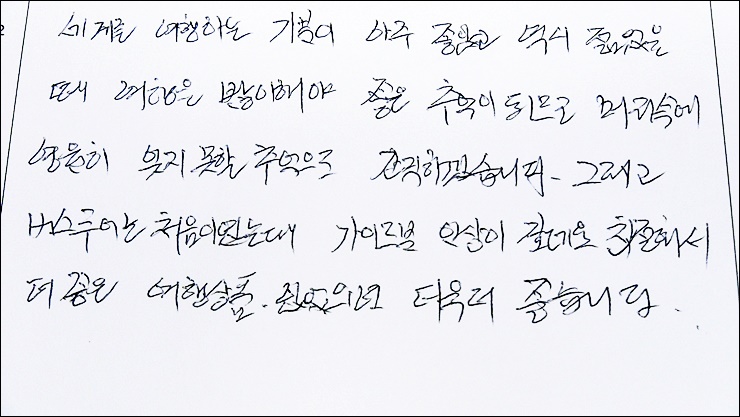 세계를 여행하는 기분이 아주 좋았고 역시 젊었을
때 여행은 많이해야 좋은 추억이 되므로 머리속에
영원히 잊지 못할 추억으로 간직하겠습니다. 그리고
버스투어는 처음이었는데 가이드분 인상이 친절하시
더 좋은 여행상품. 더욱더 좋습니다.